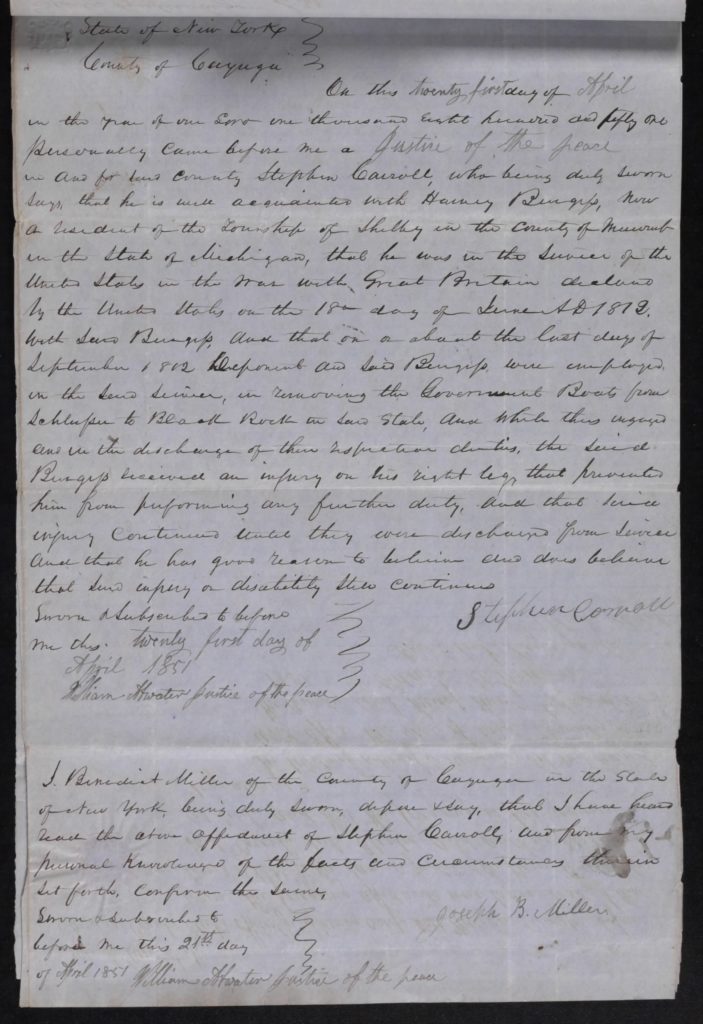 State of New York
County of Cayuga
On this twenty first day of April
in the year of our Lord one thousand eight hundred and fifty one
personally came before me a Justice of the peace
in and for said county Stephen Carroll, who being duly sworn
says, that he is well acquainted with Harvey Burgess, now
a resident of the Township of Shelby in the county of
in the State of Michigan, that he was in the service of the
United States in the war with Great Britain declared
by the United States on the 18th day of June AD 1812.
with said Burgess and that on or about the last days of
September 1812 Deponent and said Burgess were employed
in the said service, in removing the Government Boats from
Schlosser to Black Rock in said State, and while thus engaged
and in the discharge of their respective duties, the said
Burgess received an injury on his right leg, that prevented
him from performing any further duty, and that said
injury continued until they were discharged from service
and that he has good reason to believe and does believe
that said injury or disability still continues
Stephen Carroll
Sworn & Subscribed to before
me this twenty first day of
April 1851
William Atwater Justice of the peace
I, Benedict Miller of the County of Cayuga in the State
of New York, being duly sworn, depose & say, that I have heard
read the above affidavit of Stephen Carroll, and from my
personal knowledge of the facts and circumstances therein
set forth, confirm the same,
Joseph B. Miller
Sworn & subscribed to
before me this 21st day
of April 1851 William Atwater Justice of the peace